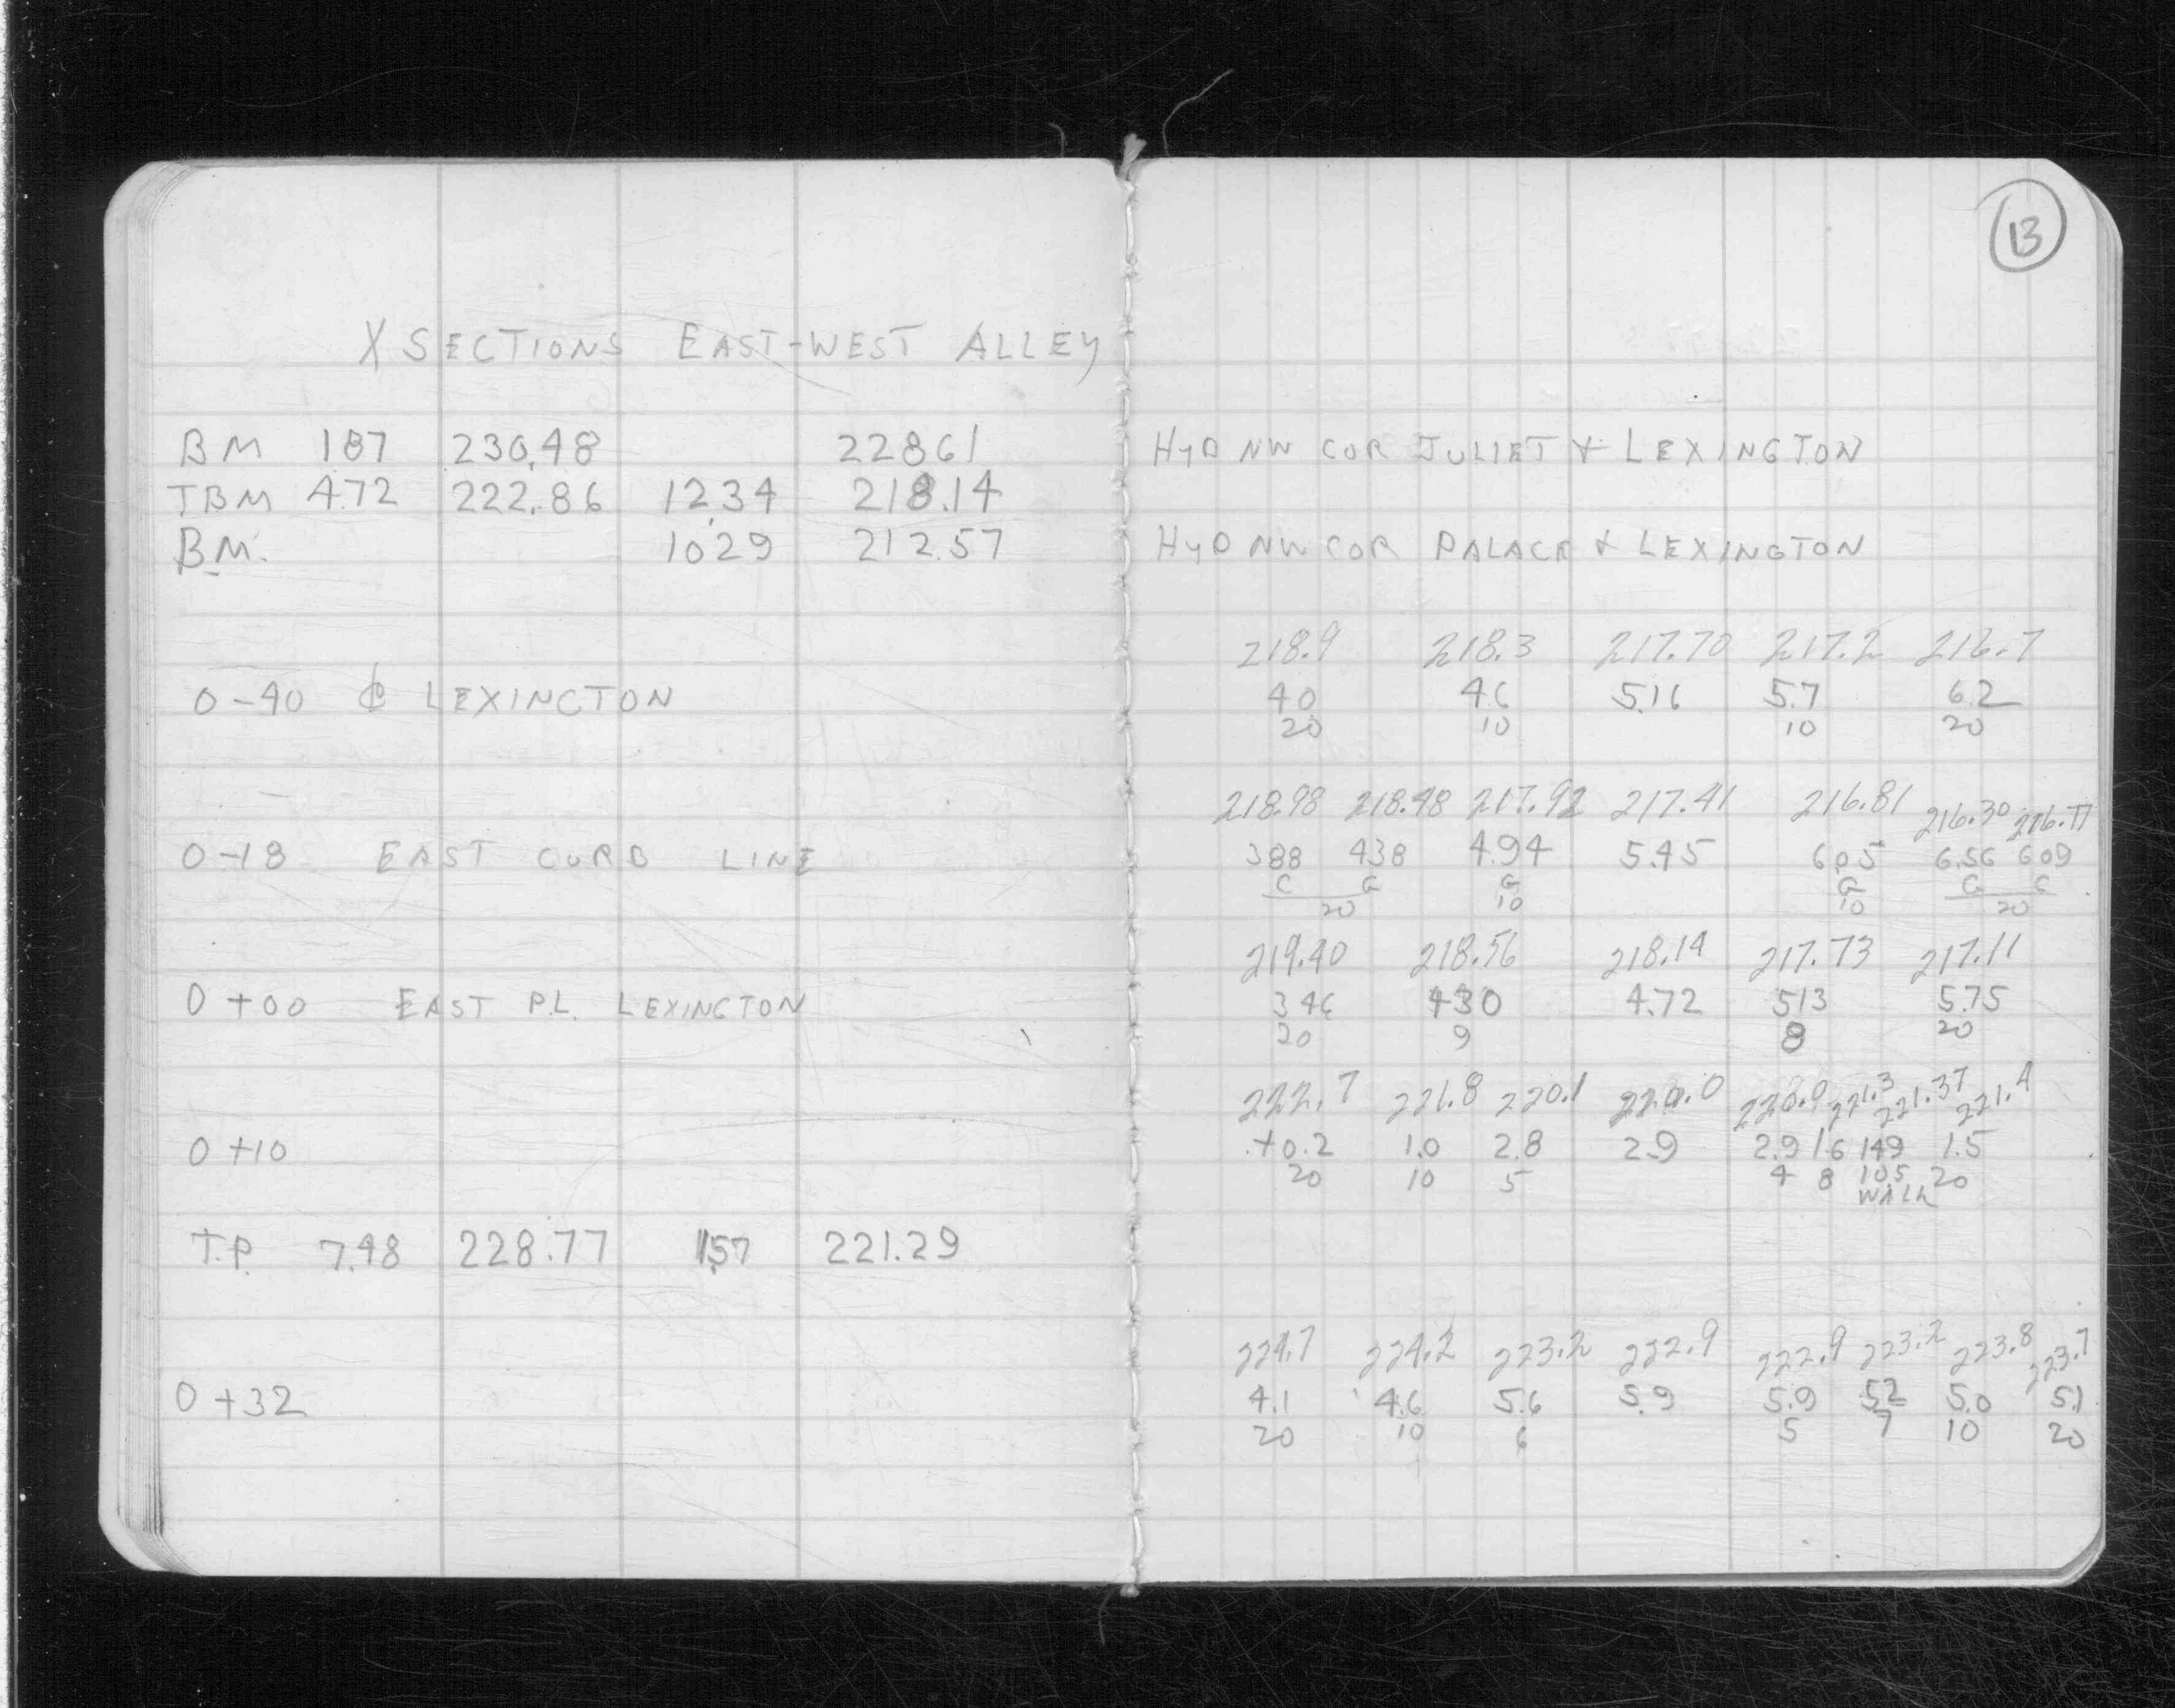 13
X SECTIONS EAST-WEST ALLEY
BM 187 230.48 22861 HYD NW COR JULIET & LEXINGTON
TBM 4.72 222.86 12.34 218.14
BM. 1029 212.57 HYD NW COR PALACE & LEXINGTON
218.9 218.3 217.70 217.2 216.7
0-40 ₵ LEXINGTON 40 4.6 5.16 5.7 6.2
20 10 10 20
218.98 218.48 217.92 217.41 216.81 216.30 216.77
0-18 EAST CURB LINE 388 438 4.94 5.45 6.05 6.56 6 09
C G G G G C
20 10 10 20
219.40 218.56 218.14 217.73 217.11
0+00 EAST P.L. LEXINGTON 346 430 4.72 513 5.75
20 9 8 20
222.7 221.8 220.1 220.0 220.0 221.3 221.37 221.4
0+10 +0.2 1.0 2.8 2.9 2.9 1.6 149 1.5
20 10 5 4 8 10.5 20
WALK
T.P. 7.48 228.77 1.57 221.29
224.7 224.2 223.2 222.9 222.9 223.2 223.8 223.7
0+32 4.1 4.6 5.6 5.9 5.9 52 5.0 5.1
20 10 6 5 7 10 20